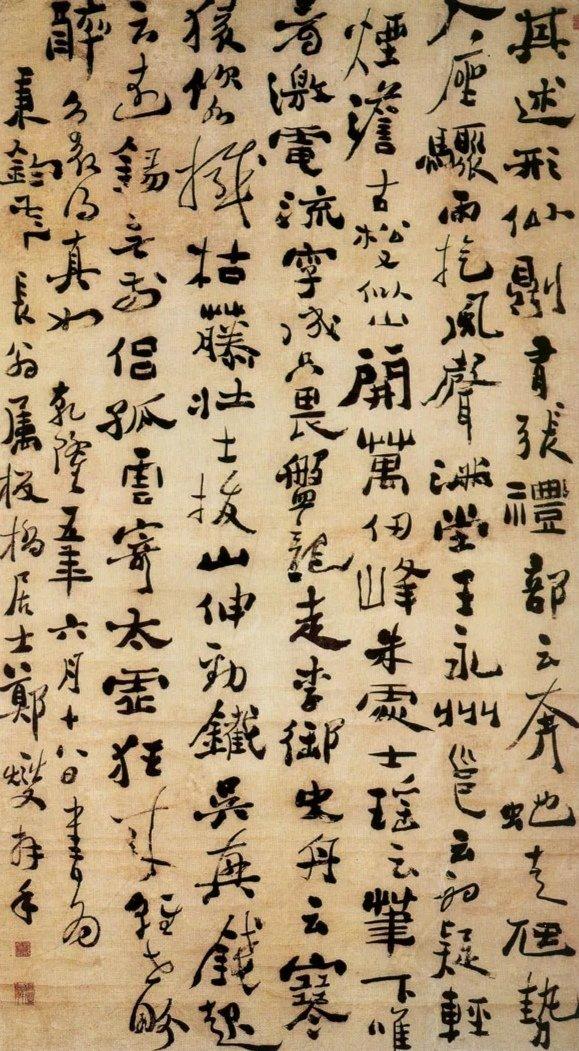 其述形似則有張禮部云奔虵走虺勢
入座驟雨旋風聲滿堂王永州邕云初疑輕
煙澹古松又似山開萬仞峰朱處士瑶云筆下唯
看激電流字成只畏盤龍走李御史舟云寒
猿飲水撼枯藤壯士拔山伸勁鐵吳興錢起
云遠錫無前侶孤雲寄太虛狂來輕世界
醉得真如 乾隆五年六月十八日書為
秉鈞長翁屬板橋居士鄭燮